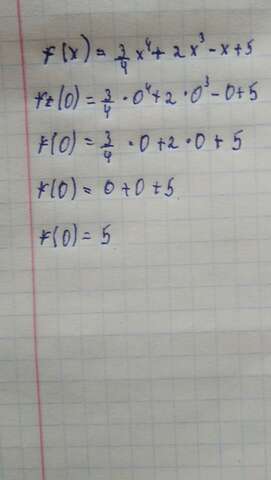 f(x) = 3/4 x⁴ + 2x³ - x + 5
f(0) = 3/4 · 0⁴ + 2 · 0³ - 0 + 5
f(0) = 3/4 · 0 + 2 · 0 + 5
f(0) = 0 + 0 + 5
f(0) = 5